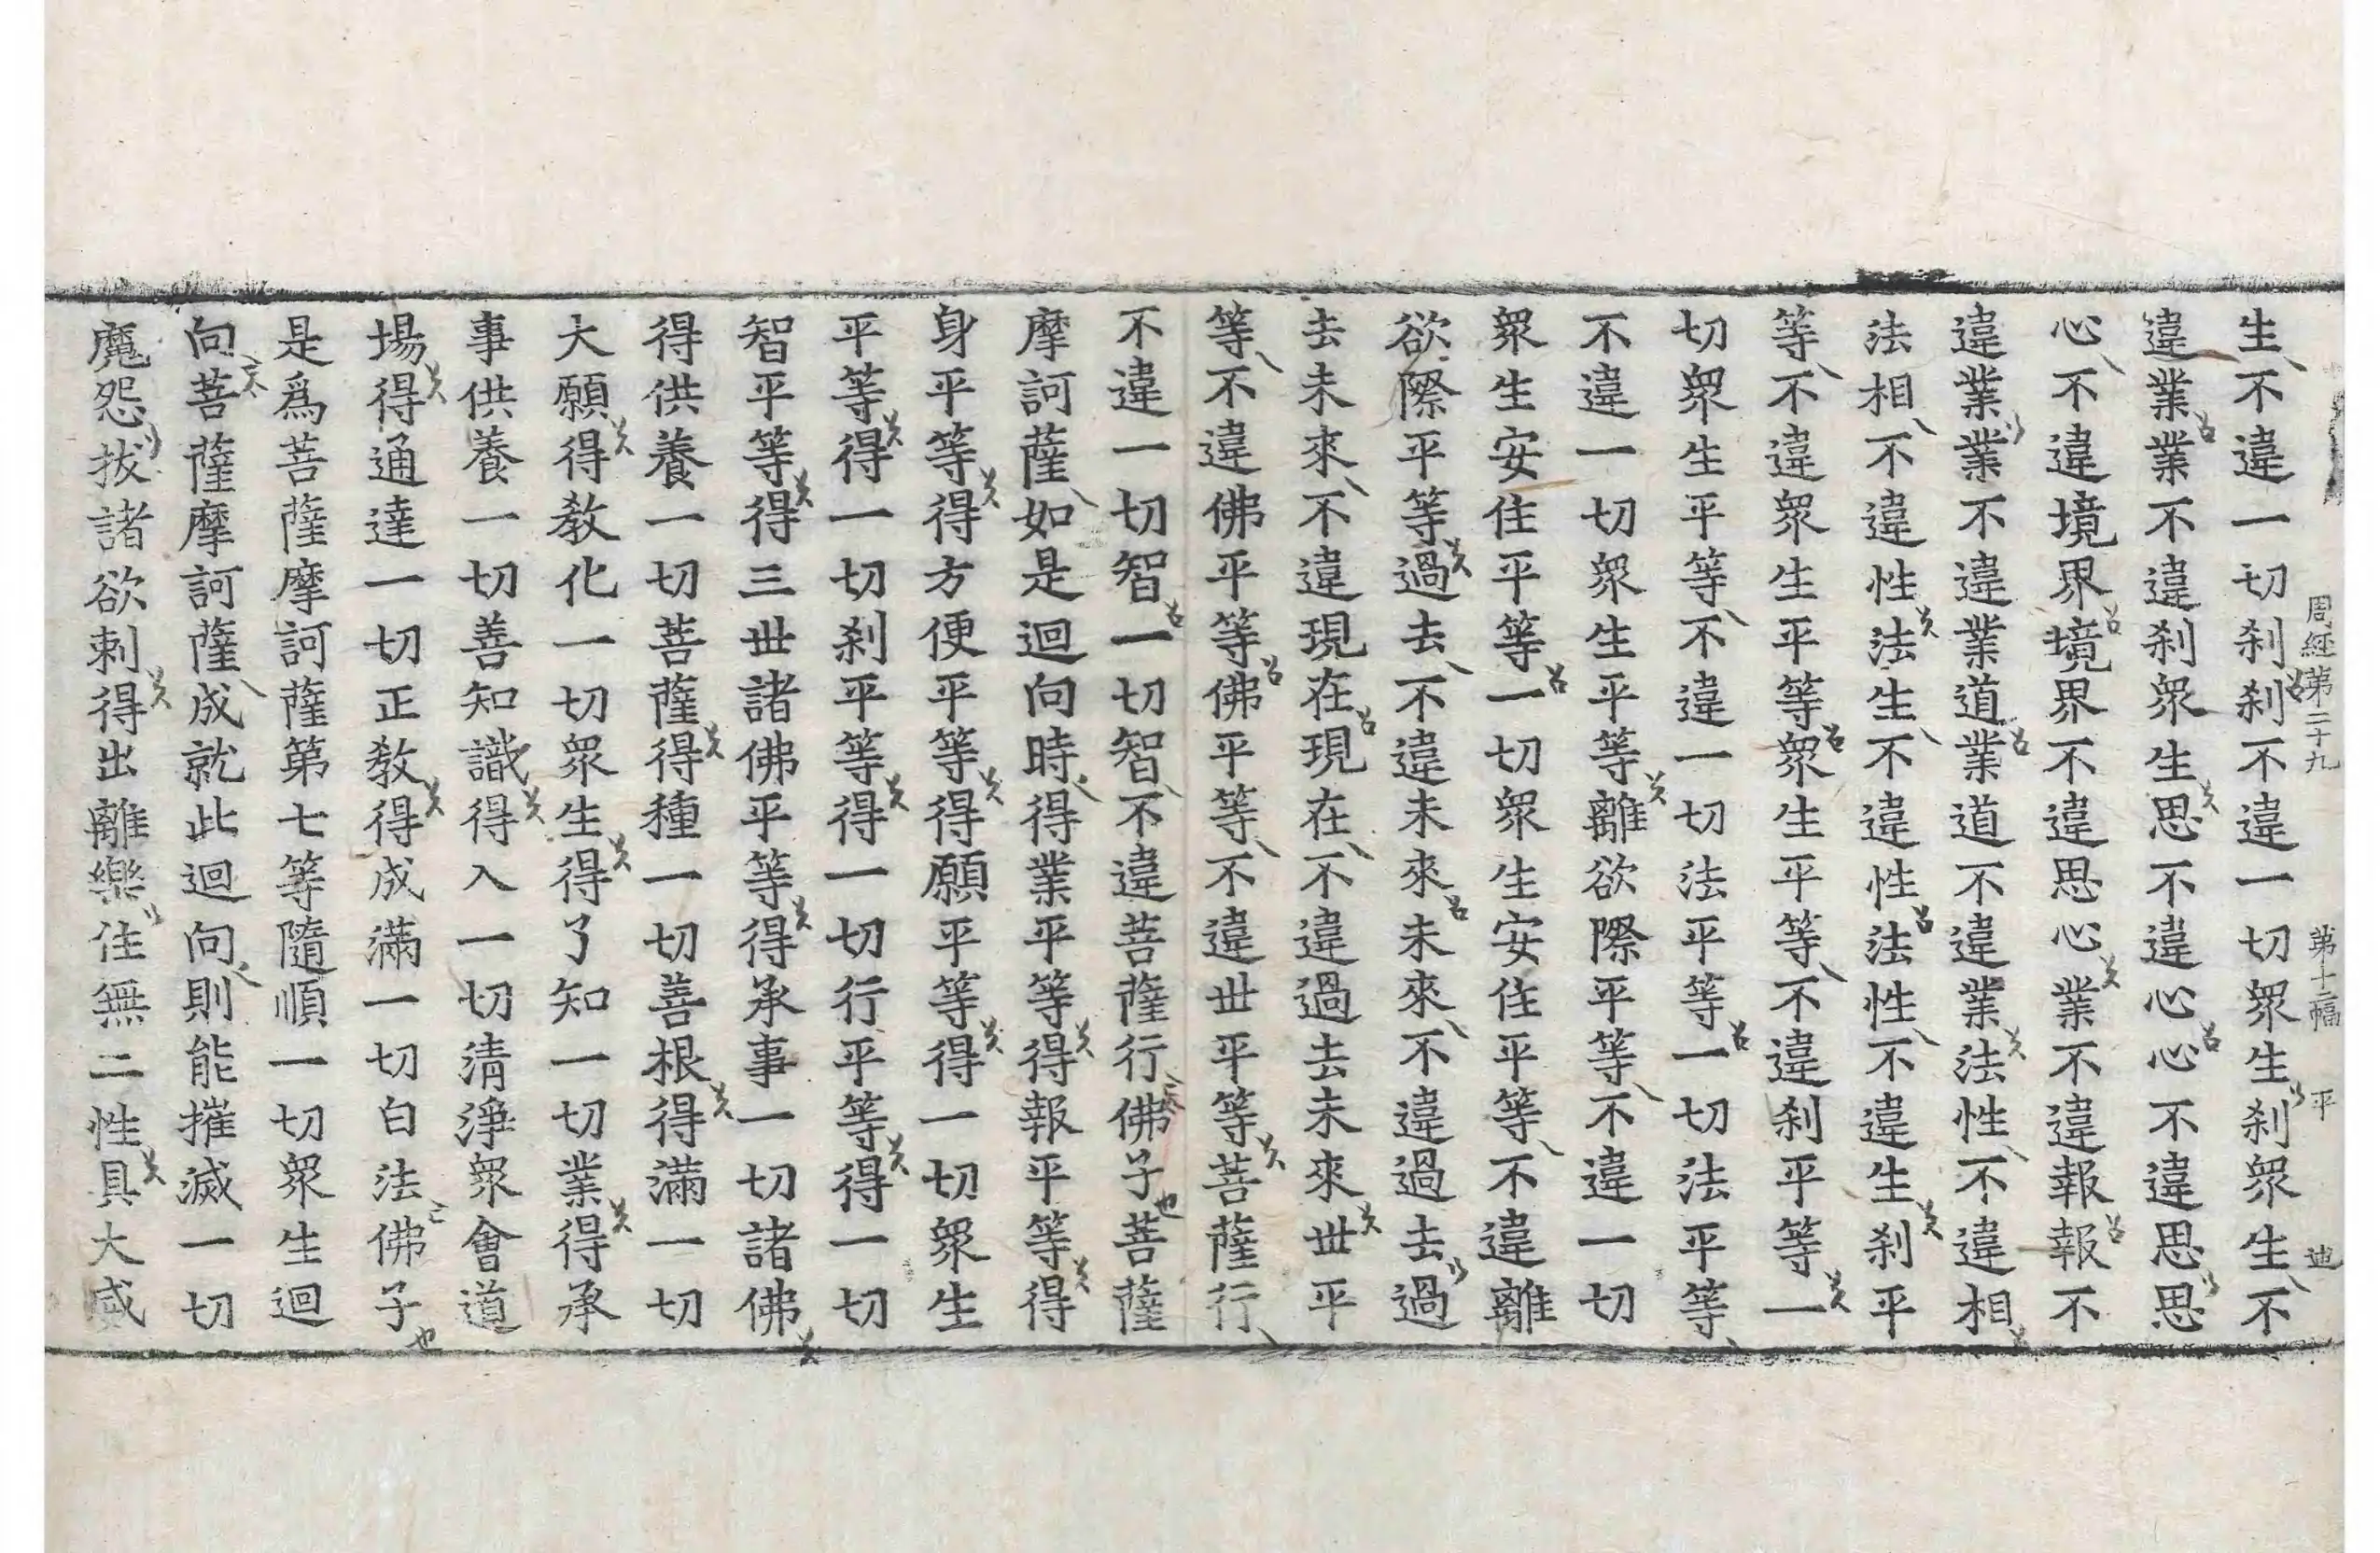 周經第二十九 第十二幅 平 迪
生不違一切刹刹不違一切衆生刹衆生不
違業業不違刹衆生思不違心心不違思思
心不違境界境界不違思心業不違報報不
違業業不違業道業道不違業法性不違相
法相不違性法生不違性法性不違生刹平
等不違衆生平等衆生平等不違刹平等一
切衆生平等不違一切法平等一切法平等
不違一切衆生平等離欲際平等不違一切
衆生安住平等一切衆生安住平等不違離
欲際平等過去不違未來未來不違過去過
去未來不違現在現在不違過去未來世平
等不違佛平等佛平等不違世平等菩薩行
不違一切智一切智不違菩薩行佛子菩薩
摩訶薩如是迴向時得業平等得報平等得
身平等得方便平等得願平等得一切衆生
平等得一切刹平等得一切行平等得一切
智平等得三世諸佛平等得承事一切諸佛
得供養一切菩薩得種一切善根得滿一切
大願得教化一切衆生得了知一切業得承
事供養一切善知識得入一切清淨衆會道
場得通達一切正教得成滿一切白法佛子
是爲菩薩摩訶薩第七等隨順一切衆生迴
向菩薩摩訶薩成就此迴向則能摧滅一切
魔怨拔諸欲刺得出離樂住無二性具大威